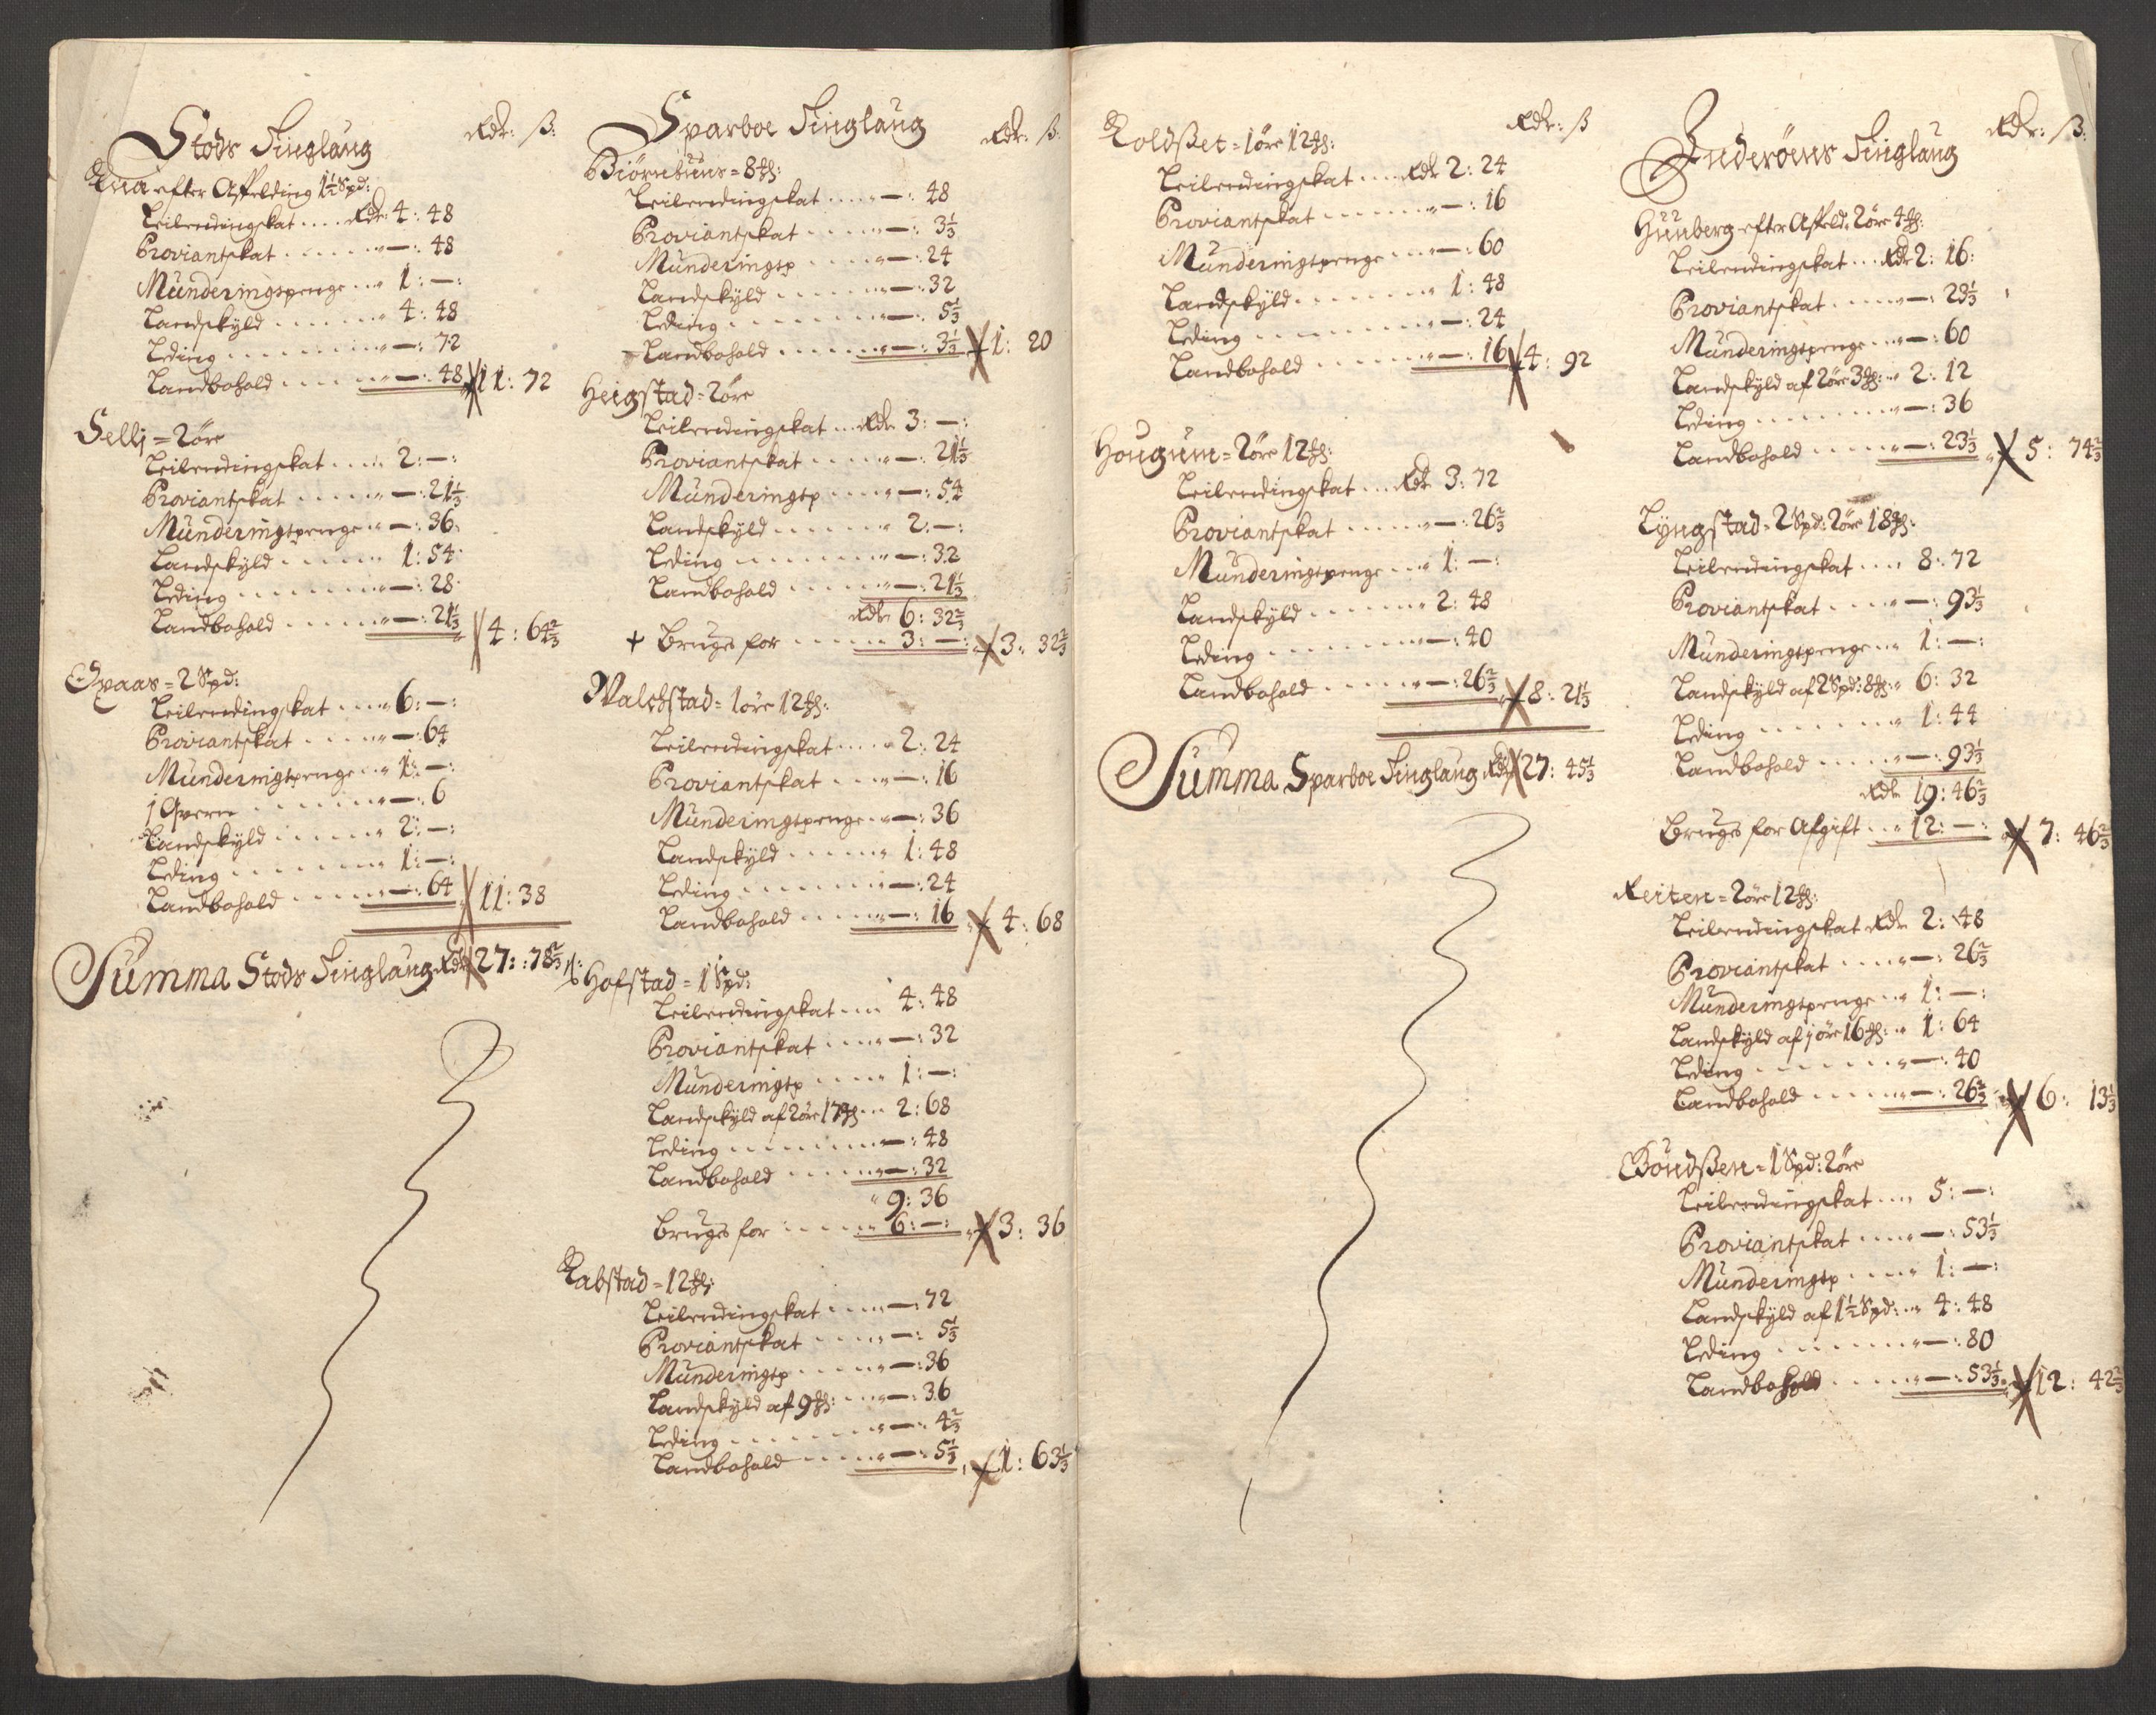 Stods Tinglaug Rdr: ß:
Qua efter Affelding 1½ Spd:
Leilendingskat .... Rdr 4: 48
Proviantskat ...... " —: 48
Munderingspenge ... " 1: —:
Landskyld ....... " 4: 48
Leding ......... " —: 72
Landbohold ...... " —: 48 11: 72
Sellj = 2 øre
Leilendingskat .... " 2: —:
Proviantskat ..... " —: 21⅓
Munderingspenge " —: 36:
Landskyld ..... " 1: 54:
Leding ........ " —: 28:
Landbohold ...... " —: 21⅓ 4: 64⅔
Opaas = 2 Spd:
Leilendingskat .... " 6: —:
Proviantskat ..... " —: 64
Munderingspenge .. " 1: —:
j Qvern ........ " —: 6
Landskyld ...... " 2: —:
Leding ........ " 1: —:
Landbohold ..... " —: 64 11: 38
Summa Stods Tinglaug Rdr 27: 78⅔ ß:
Sparboe Tinglaug Rdr: ß:
Biørnbuus = 8 ₰:
Leilendingskat ..... " —: 48
Proviantskat ..... " —: 3⅓
Munderingsp ..... " —: 24
Landskyld ....... " —: 32
Leding ........ " —: 5⅓
Landbohold ...... " —: 3⅓ 1: 20
Heigstad = 2 øre
Leilendingskat ... Rdr 3: —:
Proviantskat ..... " —: 21⅓
Munderingsp .... " —: 54
Landskyld ...... " 2: —:
Leding ........ " —: 32
Landbohold ..... " —: 21⅓
Rdr 6: 32⅔
+ Bruges for ..... " 3: —: 3: 32⅔
Walchstad = 1 øre 12 ₰:
Leilendingskat .... " 2: 24
Proviantskat .... " —: 16
Munderingspenge .. " —: 36
Landskyld ...... " 1: 48
Leding ....... " —: 24
Landbohold ..... " —: 16 4: 68
Hofstad = 1 Spd:
Leilendingskat ... " 4: 48
Proviantskat .... " —: 32
Munderingsp .... " 1: —:
Landskyld af 2 øre 17 ₰ ... 2: 68
Leding ........ " —: 48
Landbohold ..... " —: 32
" 9: 36
Bruges for ...... " 6: —: 3: 36
Rabstad = 12 ₰:
Leilendingskat .... " —: 72
Proviantskat .... " —: 5⅓
Munderingsp ..... " —: 36
Landskyld af 9 ₰: ... " —: 36
Leding ........ " —: 4⅔
Landbohold ..... " —: 5⅓ 1: 63⅓
Rdr: ß
Koldßet = 1 øre 12 ₰:
Leilendingskat .... Rdr 2: 24
Proviantskat ...... " —: 16
Munderingspenge ... " —: 60
Landskyld ....... " 1: 48
Leding ......... " —: 24
Landbohold ...... " —: 16 4: 92
Hougum = 2 øre 12 ₰:
Leilendingskat ... Rdr 3: 72
Proviantskat ..... " —: 26⅔
Munderingspenge ... " 1: —:
Landskyld ...... " 2: 48
Leding ........ " —: 40
Landbohold ..... " —: 26⅔ 8: 21⅓
Summa Sparboe Tinglaug Rdr 27: 45⅓
Inderøens Tinglaug Rdr: ß:
Huuberg efter Affeld: 2 øre 4 ₰:
Leilendingskat ... Rdr 2: 16:
Proviantskat ..... " —: 29⅓
Munderingspenge ... " —: 60
Landskyld af 2 øre 3 ₰: " 2: 12
Leding ....... " —: 36
Landbohold ..... " —: 23⅓ 5: 74⅔
Lyngstad = 2 Spd: 2 øre 18 ₰:
Leilendingskat .... 8: 72
Proviantskat .... " —: 93⅓
Munderingspenge .. " 1: —:
Landskyld af 2 Spd: 8 ₰: " 6: 32
Leding ....... " 1: 44
Landbohold ..... " —: 93⅓
Rdr 19: 46⅔
Bruges for Afgift .. " 12: —: 7: 46⅔
Reiten = 2 øre 12 ₰:
Leilendingskat Rdr 2: 48
Proviantskat .... " —: 26⅔
Munderingspenge .. " 1: —:
Landskyld af j øre 16 ₰: " 1: 64
Leding ....... " —: 40
Landbohold ..... " —: 26⅔ 6: 13⅓
Boudßen = 1 Spd: 2 øre
Leilendingskat .... 5: —:
Proviantskat .... " —: 53⅓
Munderingsp .... " 1: —:
Landskyld af 1½ Spd: .. " 4: 48
Leding ....... " —: 80
Landbohold ..... " —: 53⅓ 12: 42⅔